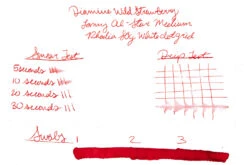 Diamine Wild Strawberry
Lamy Al-Star Medium
Rhodia Ice White dotgrid
Smear Test
Drip Test
5 seconds
10 seconds
20 seconds
30 seconds
Swabs
1
2
3